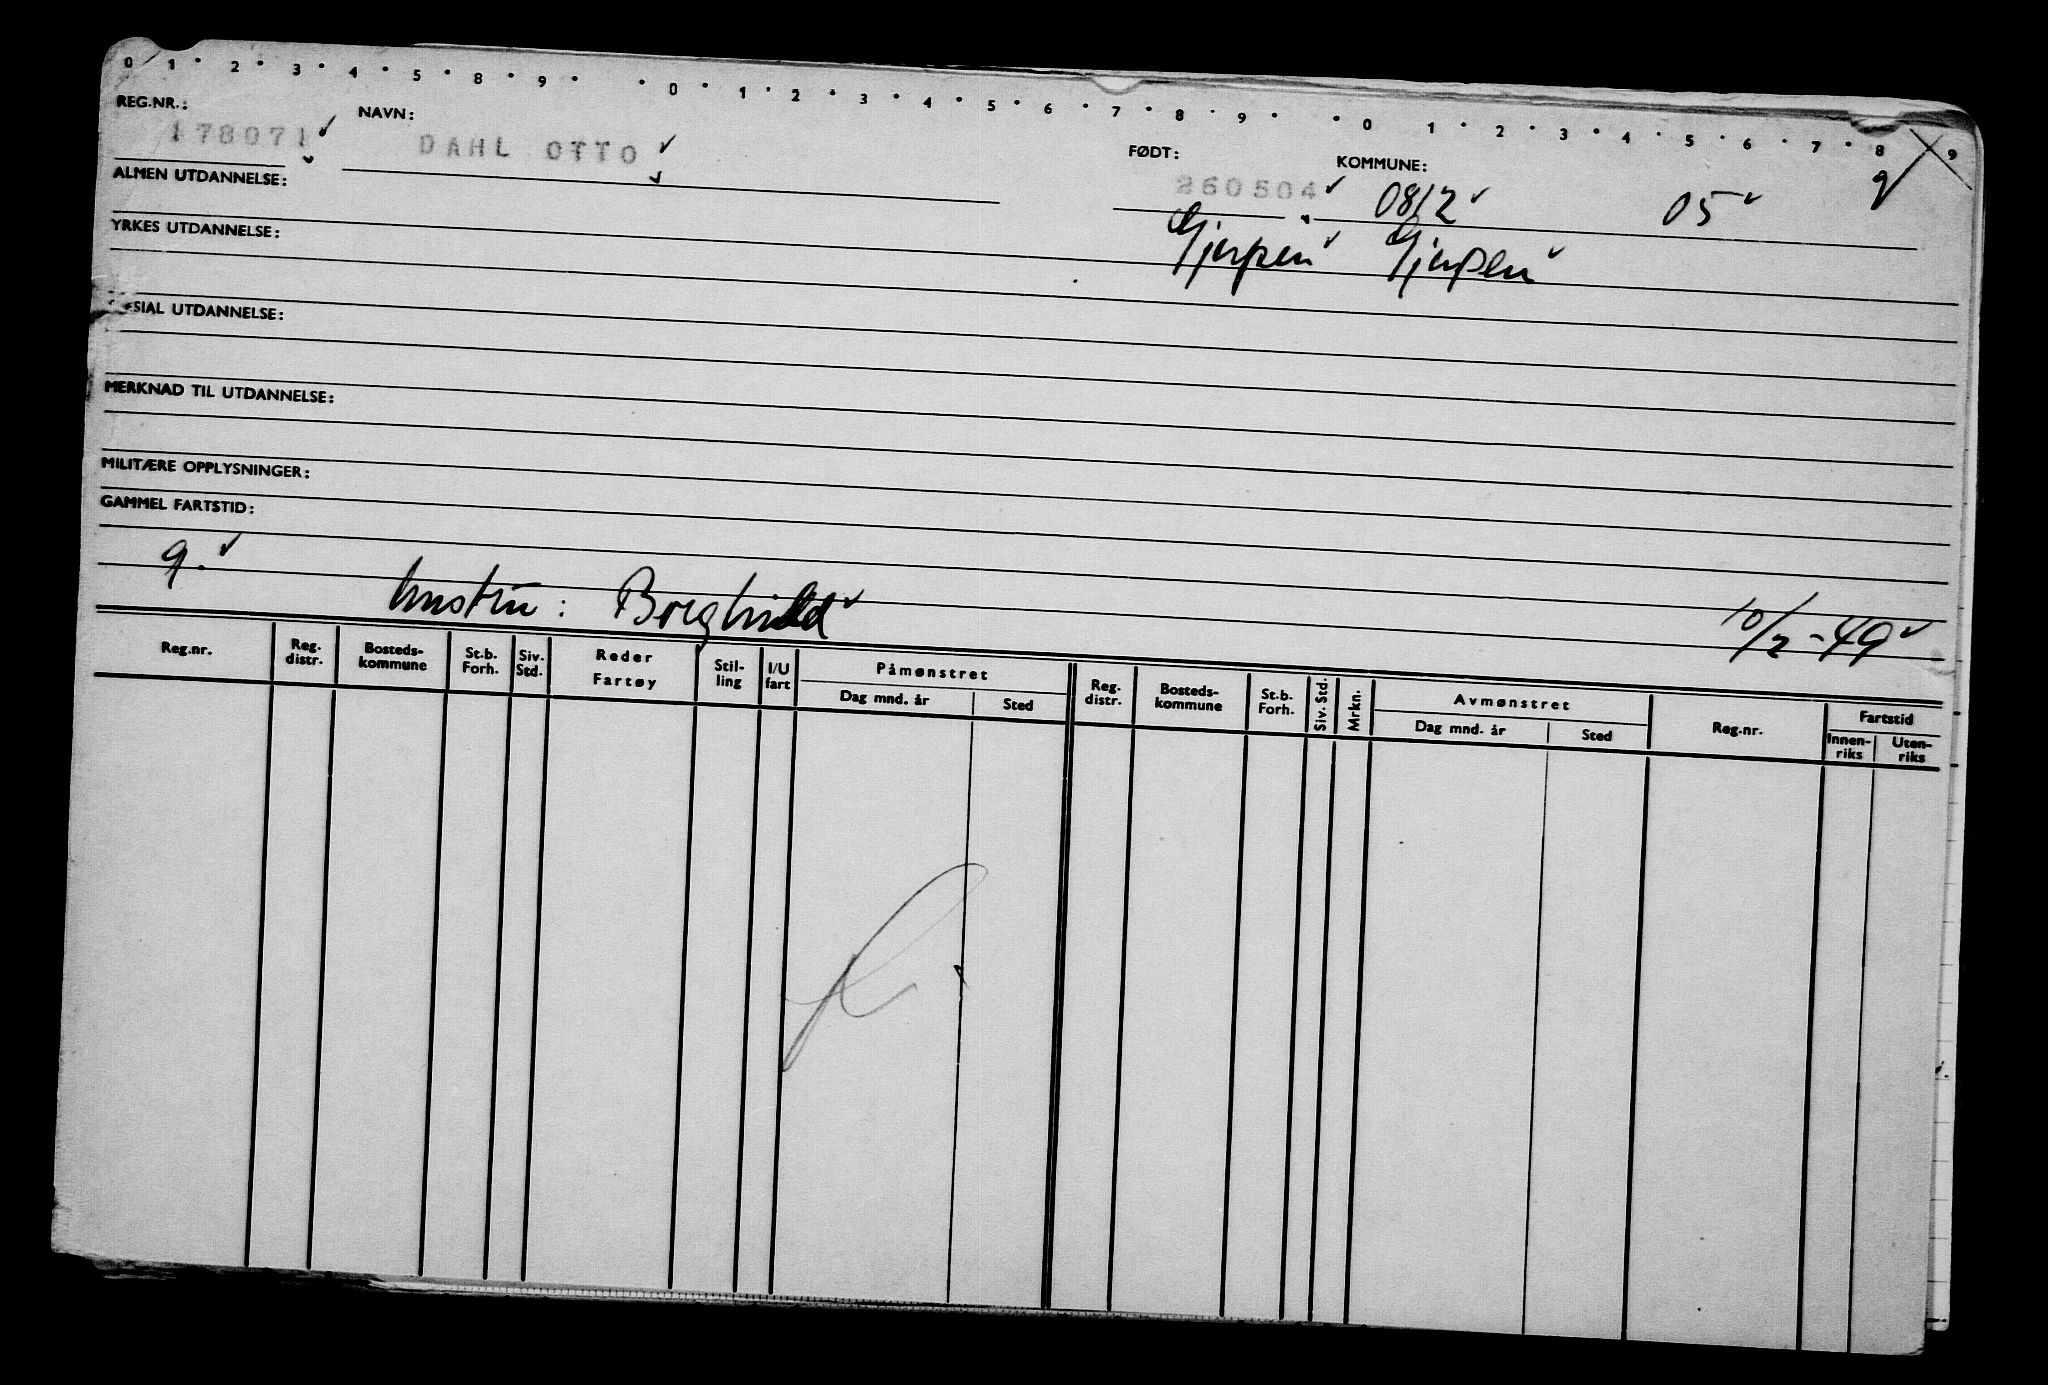 0 1 • 2 • 3 • 4 • 5 • 8 • 9 • • 0 • 1 • 2 • 3 • 4 • 5 • 6 • 7 • 8 • 9 • • 0 1 • 2 • 3 • 4 • 5 • 6 • 7 • 8 9
REG.NR.: NAVN: FØDT: KOMMUNE:
178071 DAHL OTTO 260504 0812 05 g
ALMEN UTDANNELSE:
Gjerpen Gjerpen
YRKES UTDANNELSE:
SIAL UTDANNELSE:
MERKNAD TIL UTDANNELSE:
MILITÆRE OPPLYSNINGER:
GAMMEL FARTSTID:
g. hustru: Borghild 10/2-49
Reg.nr. Reg. distr. Bosteds-kommune St.b. Forh. Siv. Std. Reder Fartøy Stil-ling I/U fart Påmønstret Dag mnd. år Sted Reg. distr. Bosteds-kommune St.b. Forh. Siv. Std. Mrkn. Avmønstret Dag mnd. år Sted Reg.nr. Fartstid Innen-riks Uten-riks